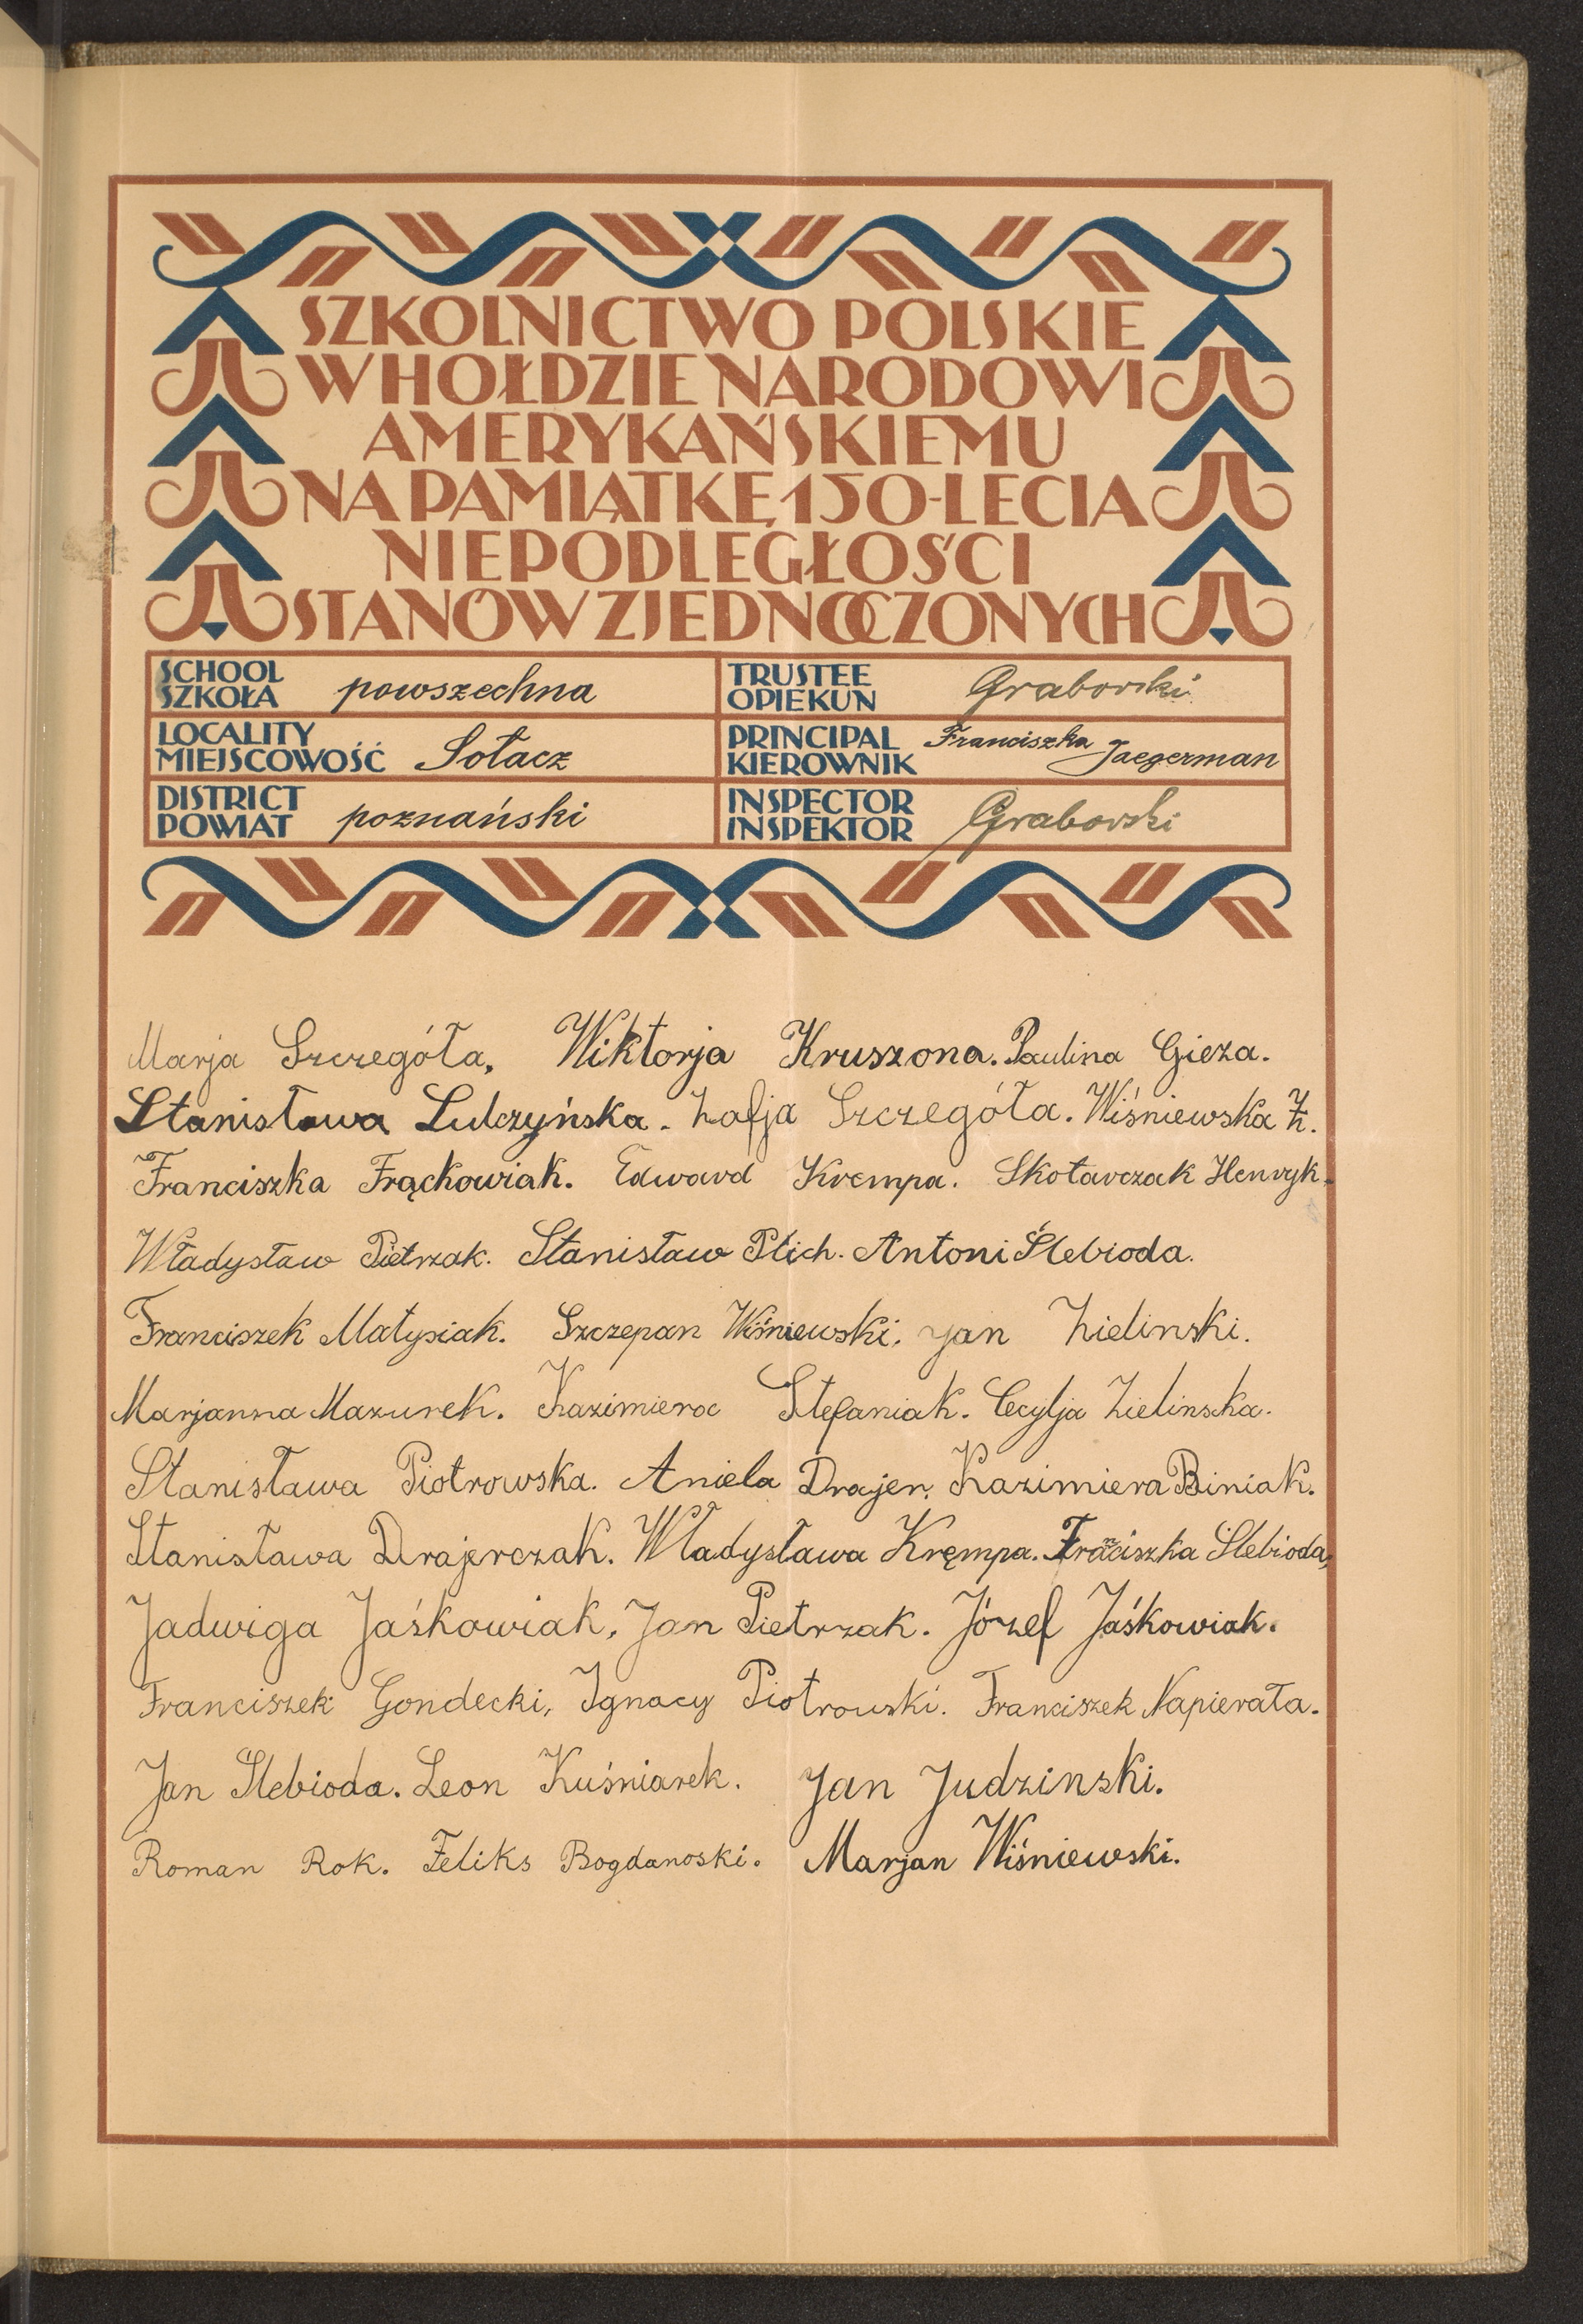 SZKOLNICTWO POLSKIE
W HOŁDZIE NARODOWI
AMERYKAŃSKIEMU
NA PAMIĄTKĘ 150-LECIA
NIEPODLEGŁOŚCI
STANÓW ZJEDNOCZONYCH
SCHOOL
SZKOŁA powszechna
TRUSTEE
OPIEKUN Grabowski
LOCALITY
MIEJSCOWOŚĆ Sołacz
PRINCIPAL
KIEROWNIK Franciszka Jaegerman
DISTRICT
POWIAT poznański
INSPECTOR
INSPEKTOR Grabowski
Marja Szczegóła, Wiktorja Kruszona. Paulina Gieza.
Stanisława Lulczyńska. Zofja Szczegóła. Wiśniewska Z.
Franciszka Frąckowiak. Edward Krempa. Skotarczak Henryk.
Władysław Pietrzak. Stanisław Plich. Antoni Ślebioda.
Franciszek Matysiak. Szczepan Wiśniewski. Jan Zielinski.
Marjanna Mazurek. Kazimiera Stefaniak. Cecylja Zielinska.
Stanisława Piotrowska. Aniela Drajer. Kazimiera Biniak.
Stanisława Drajerczak. Władysława Krempa. Franciszka Ślebioda,
Jadwiga Jaśkowiak, Jan Pietrzak. Józef Jaśkowiak.
Franciszek Gondecki, Ignacy Piotrowski. Franciszek Napierała.
Jan Ślebioda. Leon Kuśniarek. Jan Judzinski.
Roman Rok. Feliks Bogdanoski. Marjan Wiśniewski.